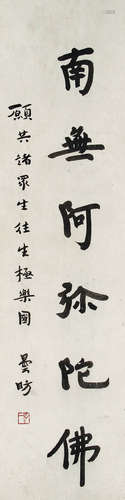 南無阿弥陀佛
願共諸眾生往生極樂國
曇昉